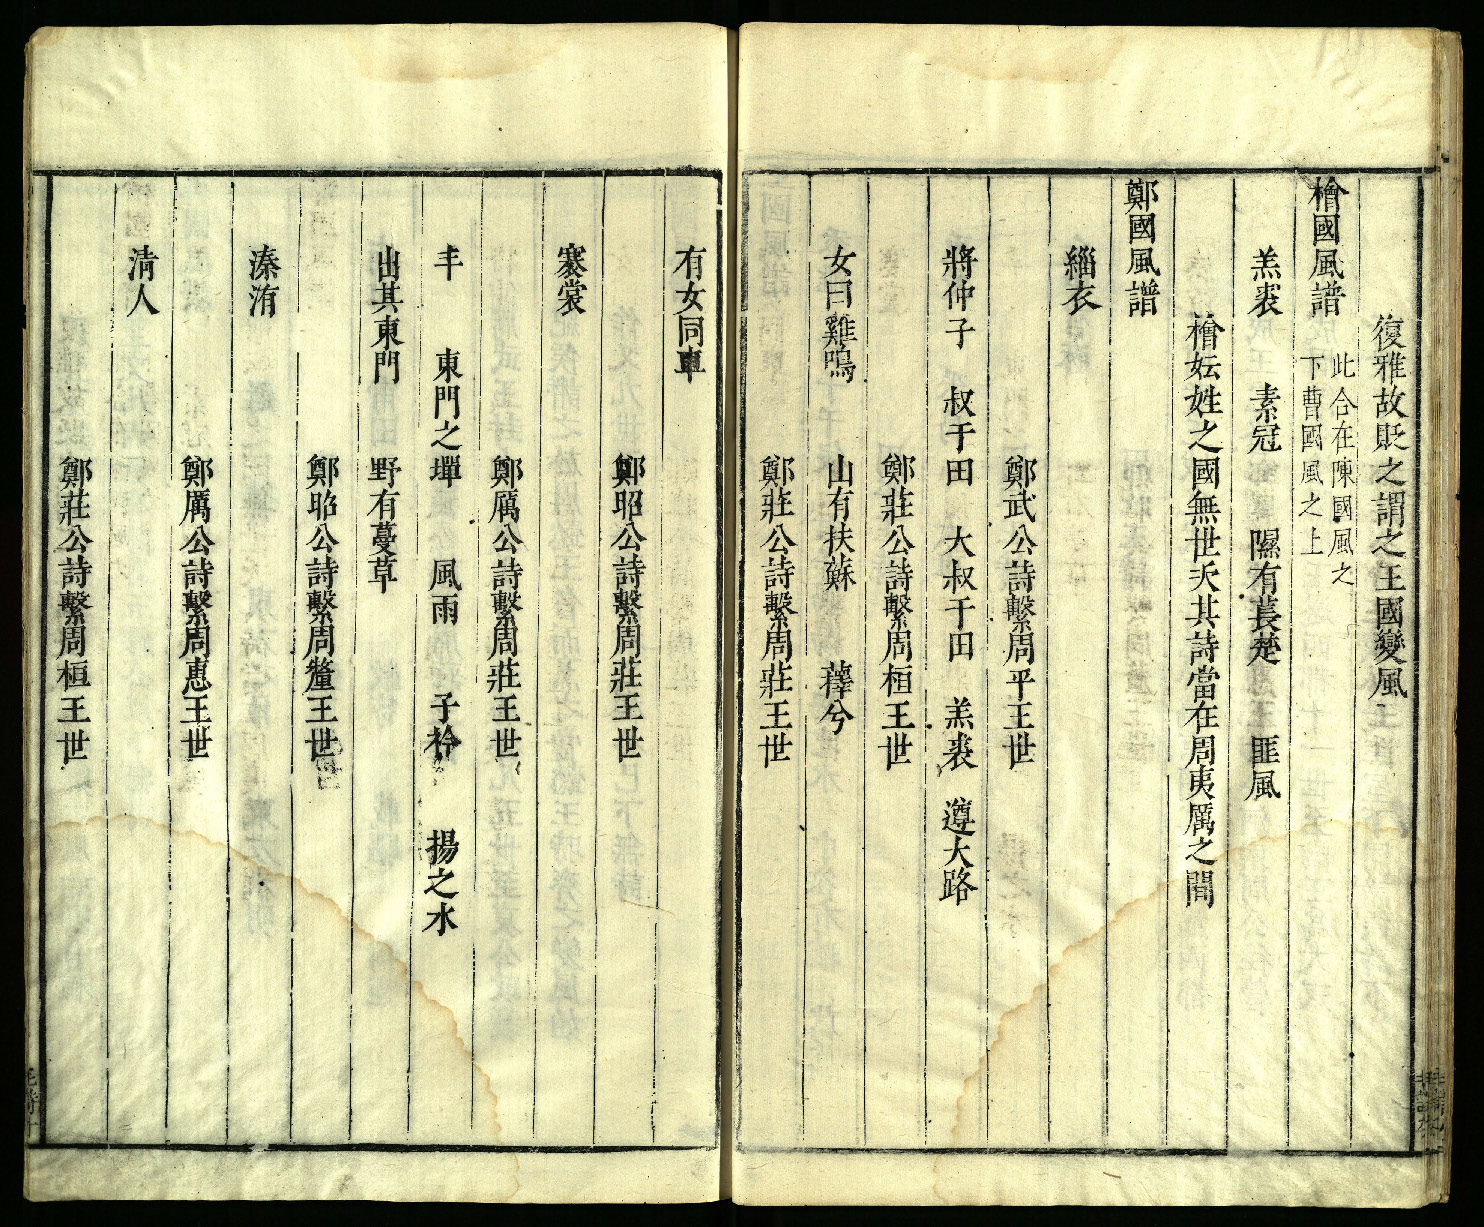 復雅故貶之謂之王國變風
檜國風譜此合在陳國風之下曹國風之上
羔裘　素冠　隰有萇楚　匪風
檜妘姓之國無世次其詩當在周夷厲之間
鄭國風譜
緇衣
鄭武公詩繫周平王世
將仲子　叔于田　大叔于田　羔裘　遵大路
鄭莊公詩繫周桓王世
女曰雞鳴　山有扶蘇　蘀兮
鄭莊公詩繫周莊王世
有女同車
鄭昭公詩繫周莊王世
褰裳
鄭厲公詩繫周莊王世
丰　東門之墠　風雨　子衿　揚之水
出其東門　野有蔓草
鄭昭公詩繫周釐王世
溱洧
鄭厲公詩繫周惠王世
清人
鄭莊公詩繫周桓王世